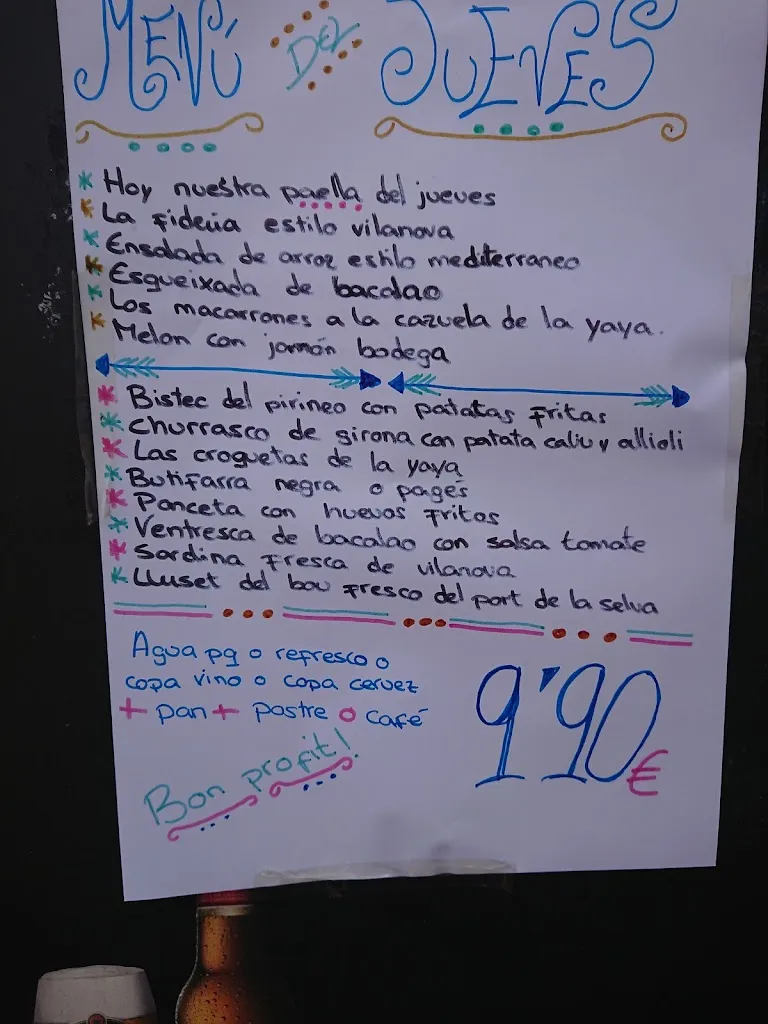 MENÚ DEL JUEVES
Hoy nuestra paella del jueves
La fideúa estilo vilanova
Ensalada de arroz estilo mediterraneo
Esgueixada de bacalao
Los macarrones a la cazuela de la yaya.
Melon con jamón bodega
Bistec del pirineo con patatas fritas
Churrasco de girona con patata caliu y allioli
Las croquetas de la yaya
Butifarra negra o pagés
Panceta con huevos fritos
Ventresca de bacalao con salsa tomate
Sardina fresca de vilanova
Lluset del bou fresco del port de la selva
Agua pq o refresco o
copa vino o copa cervez
+ pan + postre o café
9'90€
Bon profit!